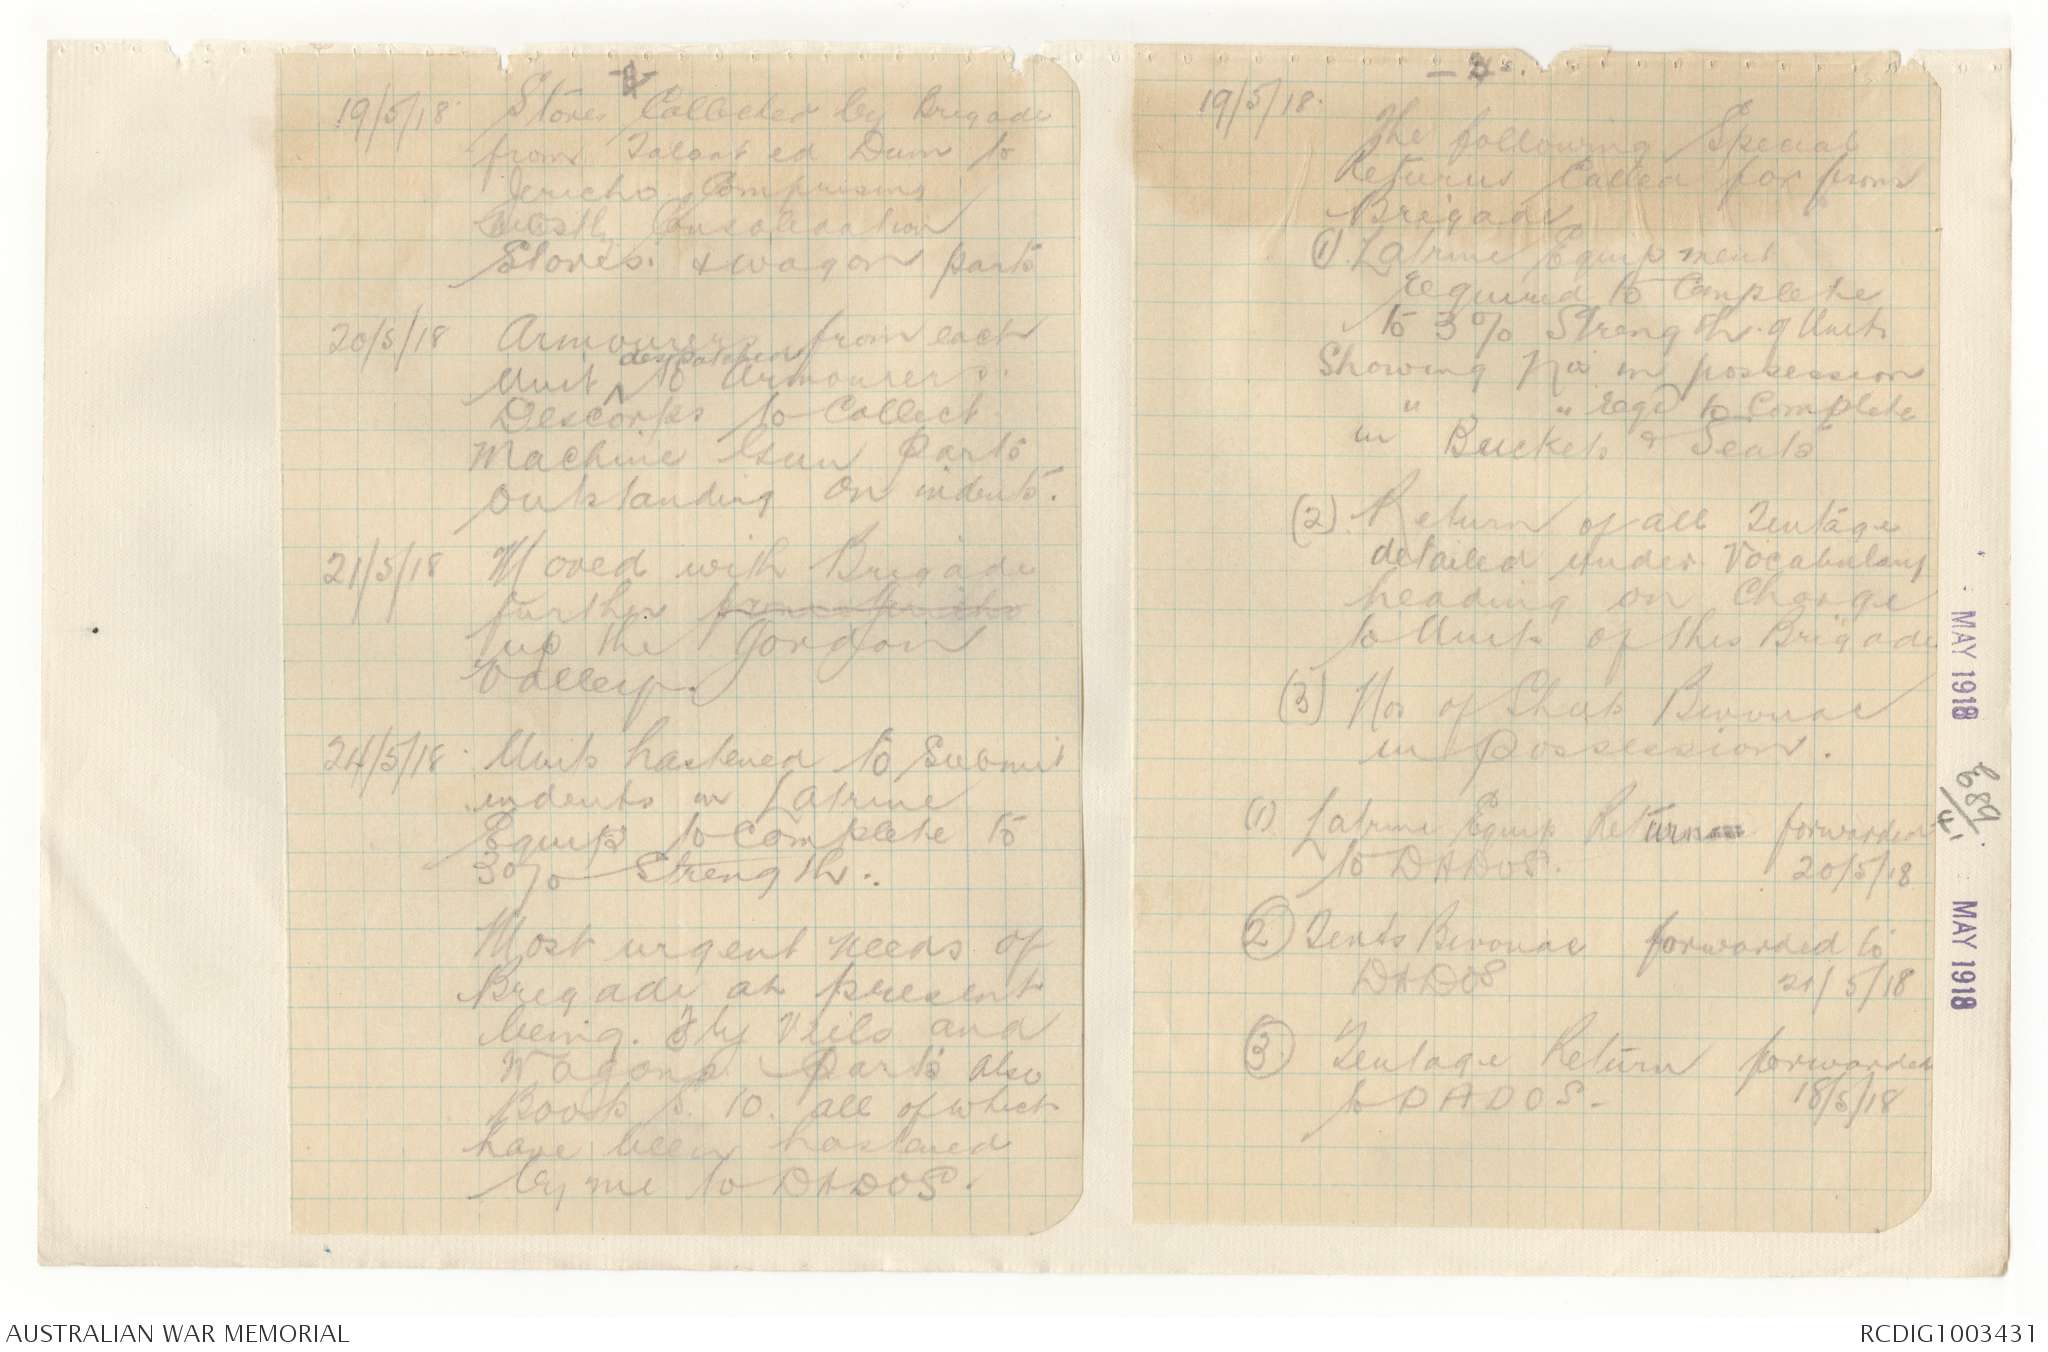 19/5/18. Stores Collected by Brigade
from Talaat ed Dum to
Jericho Comprising
mostly Consolidation
Stores. & wagon parts
20/5/18 Armourers from each
despatched
Unit to Armourers.
Descorps to Collect
Machine Gun Parts
outstanding on indents.
21/5/18 Moved with Brigade
further from Jericho
up the Jordan
Valley.
24/5/18. Units hastened to Submit
indents in Latrine
Equip to Complete to
3% Strength.
Most urgent needs of
Brigade at present
being. Fly Veils and
Wagons Parts also
Boots S. 10. all of which
have been hastened
by me to DADOS.
19/5/18.
The following Special
Returns Called for from
Brigade
(1) Latrine Equipment
required to Complete
to 3% Strength of Units
Showing Nos in possession
" " Reqd to Complete
in Buckets & Seats
(2) Return of all Tentage
detailed under Vocabulary
heading on Charge
to Units of this Brigade
(3) Nos of Shub Bivouac
in possession.
(1) Latrine Equip Return forwarded
to DADOS. 20/5/18
(2) Tents Bivouac forwarded to
DADOS 21/5/18
(3) Tentage Return forwarded
to DADOS. 18/5/18
MAY 1918
E 89/41
MAY 1918
AUSTRALIAN WAR MEMORIAL
RCDIG1003431